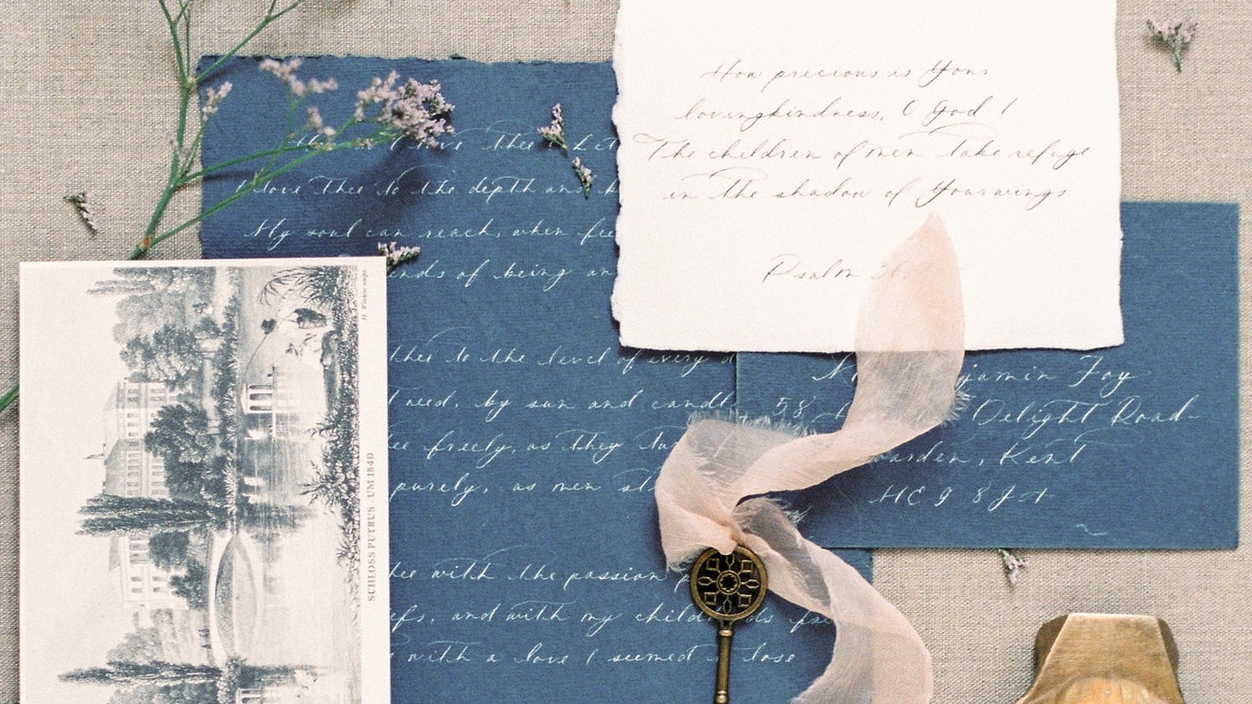 How precious is Your
lovingkindness, O God!
The children of men take refuge
in the shadow of Your wings.
Psalm
thee Let
love thee to the depth an
My soul can reach, when fee
of being an
thee to the level of every d
need, by sun and candl
freely, as they tu
purely, as men st
with the passion p
and with my child
with a love I seemed lose
jamin Foy
58 Delight Road
Kent
SCHLOSS PUTBUS - UM 1840